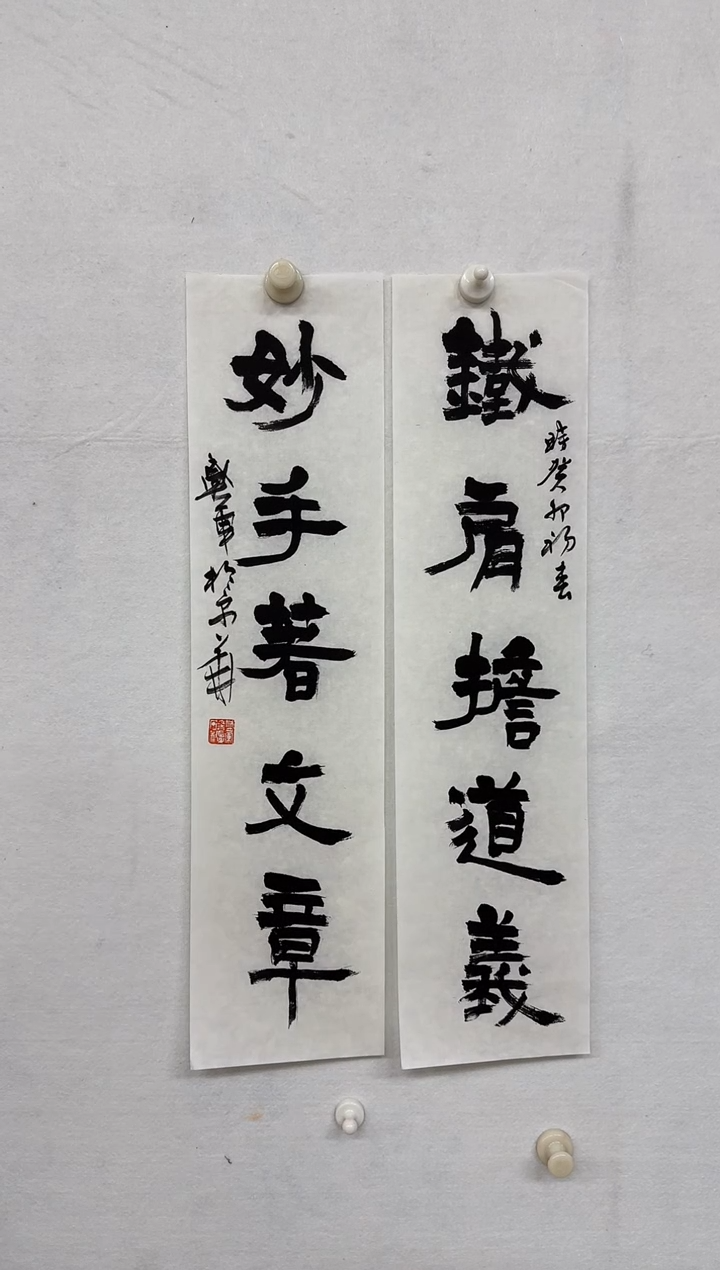 鐵肩擔道義
時癸卯初春
妙手著文章
於京華